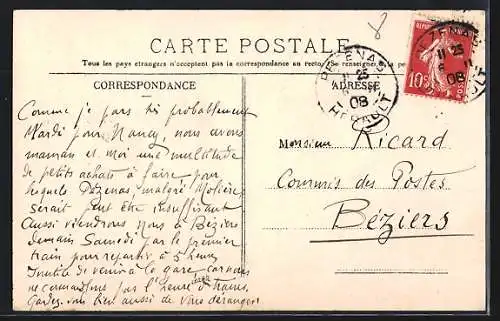 8
CARTE POSTALE
Tous les pays étrangers n'acceptent pas la correspondance au recto. (Se renseigner à la
CORRESPONDANCE
ADRESSE
PEZENAS
11 25
08
HERAULT
PEZENAS
11 25
08
10c
Comme je pars très probablement
Mardi pour Nancy, nous avons
maman et moi une multitude
de petits achats à faire pour
lesquels Pézenas malgré Molière,
serait peut être insuffisant
Aussi viendrons nous à Béziers
demain Samedi par le premier
train pour repartir à 5 heures
Inutile de venir à la gare car nous
ne connaissons pas l'heure d
Gardez vous bien aussi de vous déranger.
Monsieur Ricard
Commis des Postes
Béziers